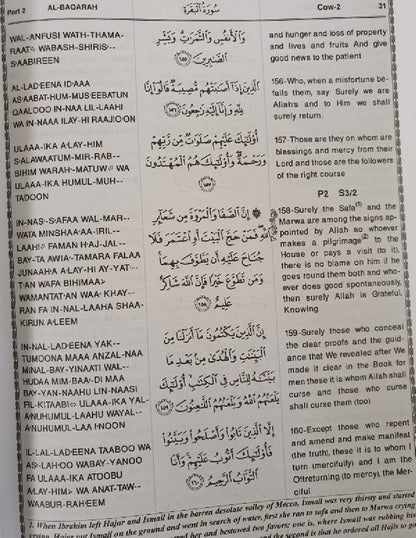 Part 2 AL-BAQARAH سُورَةُ الْبَقَرَة Cow-2 31
WAL-ANFUSI WATH-THAMA-
RAAT؞ WABASH-SHIRIS--
S'AABIREEN
وَالْأَنْفُسِ وَالثَّمَرَاتِ وَبَشِّرِ
الصَّابِرِينَ ﴿١٥٥﴾
and hunger and loss of property
and lives and fruits And give
good news to the patient
AL-LAD'EENA ID'AAA
AS'AABAT-HUM-MUS'EEBATUN
QAALOOO IN-NAA LIL-LAAHI
WA IN-NAAA ILAY-HI RAAJIO'ON
الَّذِينَ إِذَا أَصَابَتْهُمْ مُصِيبَةٌ قَالُوا إِنَّا
لِلَّهِ وَإِنَّا إِلَيْهِ رَاجِعُونَ ﴿١٥٦﴾
156-Who, when a misfortune be-
falls them, say Surely we are
Allahs and to Him we shall
surely return.
ULAAA-IKA A'LAY-HIM
S'ALAWAATUM-MIR-RAB--
BIHIM WARAH-MATUW؞ WA
ULAAA-IKA HUMUL-MUH--
TADOON
أُولَئِكَ عَلَيْهِمْ صَلَوَاتٌ مِنْ رَبِّهِمْ
وَرَحْمَةٌ وَأُولَئِكَ هُمُ الْمُهْتَدُونَ
﴿١٥٧﴾
157-Those are they on whom are
blessings and mercy from their
Lord and those are the followers
of the right course
P2 S3/2
IN-NAS'-S'AFAA WAL-MAR--
WATA MINSHAA-A'A-IRIL--
LAAHI؞ FAMAN H'AJ-JAL--
BAY-TA AWIA'-TAMARA FALAA
JUNAAH'A A'LAY-HI AY-YAT'--
T'AW WAFA BIHIMAA؞
WAMANTAT'AW WAA' KHAY--
RAN FA IN-NAL-LAAHA SHAA--
KIRUN A'LEEM
إِنَّ الصَّفَا وَالْمَرْوَةَ مِنْ شَعَائِرِ
اللَّهِ فَمَنْ حَجَّ الْبَيْتَ أَوِ اعْتَمَرَ فَلَا
جُنَاحَ عَلَيْهِ أَنْ يَطَّوَّفَ بِهِمَا
وَمَنْ تَطَوَّعَ خَيْرًا فَإِنَّ اللَّهَ شَاكِرٌ
عَلِيمٌ ﴿١٥٨﴾
158-Surely the Safa(1) and the
Marwa are among the signs ap-
pointed by Allah so whoever
makes a pilgrimage(2) to the
House or pays a visit (to it),
there is no blame on him if he
goes round them both and who-
ever does good spontaneously,
then surely Allah is Grateful,
Knowing
IN-NAL-LAD'EENA YAK--
TUMOONA MAAA ANZAL-NAA
MINAL-BAY-YINAATI WAL--
HUDAA MIM-BAA'-DI MAA
BAY-YAN-NAAHU LIN-NAASI
FIL-KITAABI؞ ULAAA-IKA YAL-
A'NUHUMUL-LAAHU WAYAL--
A'NUHUMUL-LAA I'NOON
إِنَّ الَّذِينَ يَكْتُمُونَ مَا أَنْزَلْنَا مِنَ
الْبَيِّنَاتِ وَالْهُدَى مِنْ بَعْدِ مَا
بَيَّنَّاهُ لِلنَّاسِ فِي الْكِتَابِ أُولَئِكَ
يَلْعَنُهُمُ اللَّهُ وَيَلْعَنُهُمُ اللَّاعِنُونَ ﴿١٥٩﴾
159-Surely those who conceal
the clear proofs and the guid-
ance that We revealed after We
made it clear in the Book for
men these it is whom Allah shall
curse and those who curse
shall curse them (too)
IL-LAL-LAD'EENA TAABOO WA
AS'-LAH'OO WABAY-YANOO
FA ULAAA-IKA ATOOBU
A'LAY-HIM؞ WA ANAT-TAW--
WAABUR-RAH'EEM
إِلَّا الَّذِينَ تَابُوا وَأَصْلَحُوا وَبَيَّنُوا
فَأُولَئِكَ أَتُوبُ عَلَيْهِمْ وَأَنَا
التَّوَّابُ الرَّحِيمُ ﴿١٦٠﴾
160-Except those who repent
and amend and make manifest
(the truth), these it is to whom I
turn (mercifully) and I am the
Oftreturning (to mercy), the Mer-
ciful.
1. When Ibrahim left Hajar and Ismail in the barren desolate valley of Mecca, Ismail was very thirsty and started
crying. Hajar put Ismail on the ground and went in search of water, first she ran to safa and then to Marwa crying
her and bestowed two favors: one is, where Ismail was rubbing his
and the second is that he ordered all Hajis to go